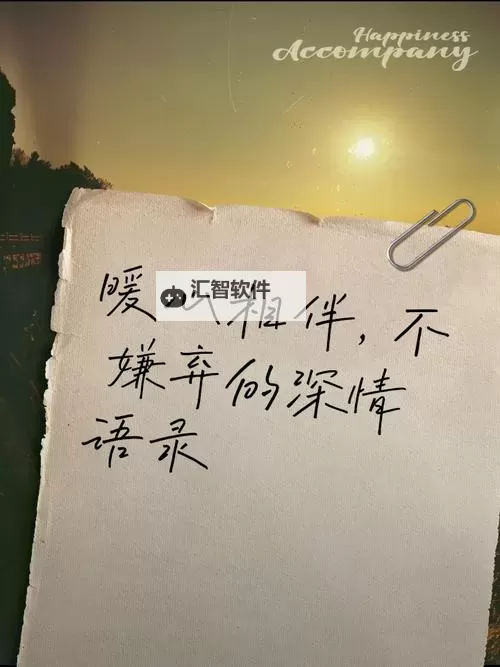 Happiness
Accompany
汇智软件
暖 相伴，不
嫌弃的深情
语录